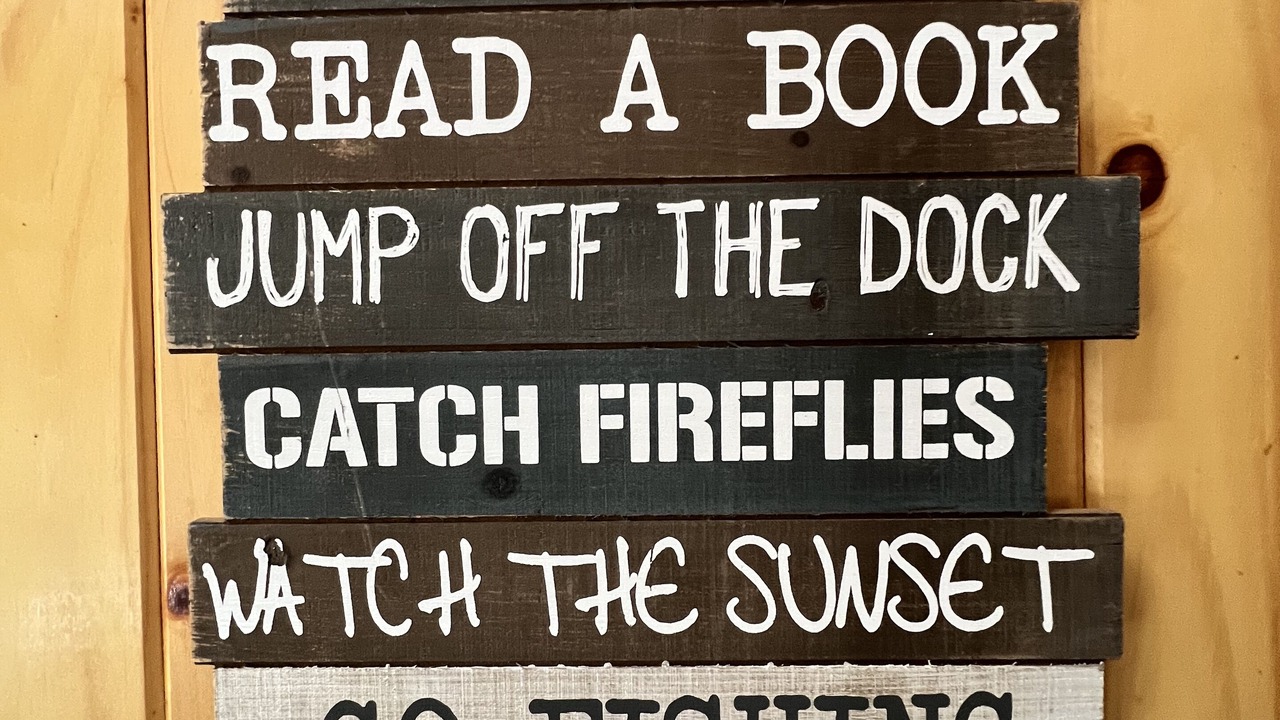 READ A BOOK
JUMP OFF THE DOCK
CATCH FIREFLIES
WATCH THE SUNSET
GO FISHING